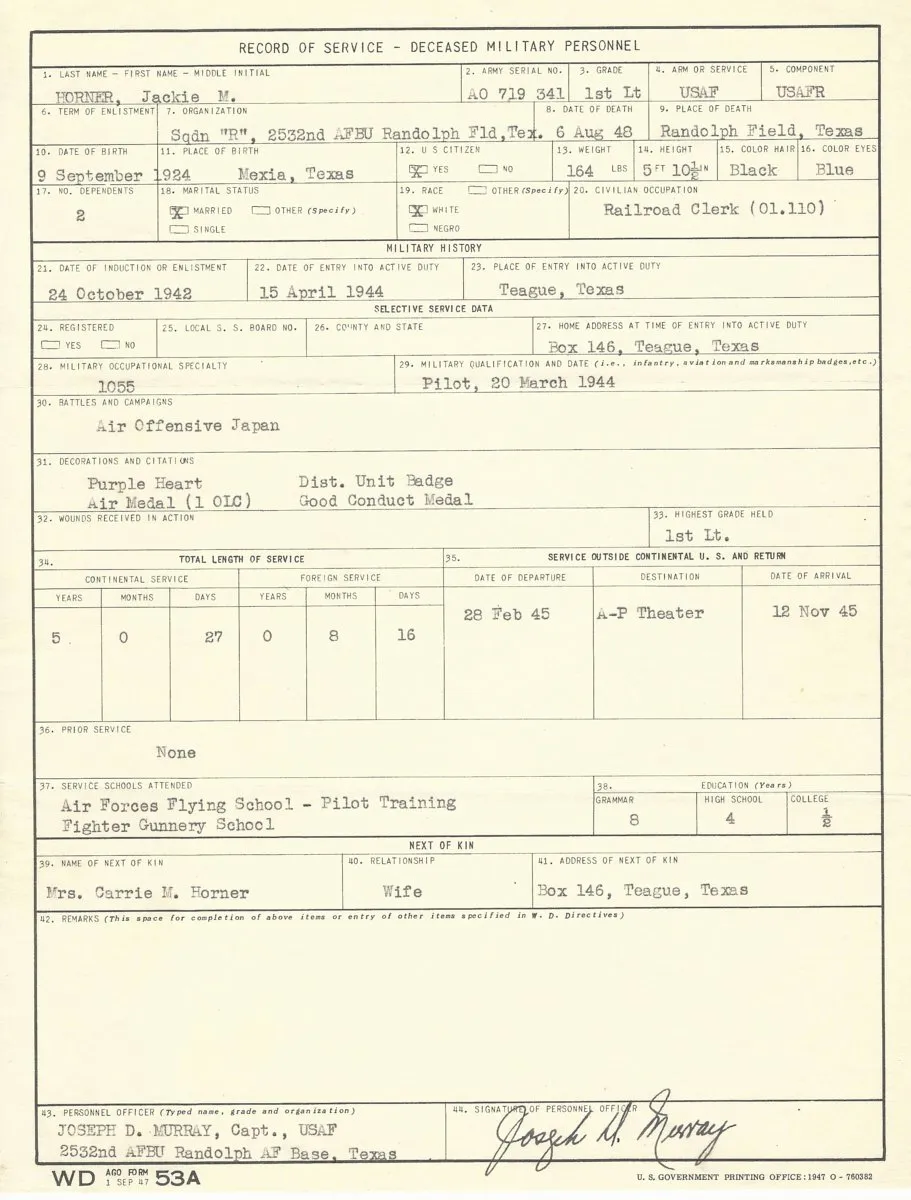 RECORD OF SERVICE - DECEASED MILITARY PERSONNEL
1. LAST NAME - FIRST NAME - MIDDLE INITIAL
HORNER, Jackie M.
2. ARMY SERIAL NO.
AO 719 341
3. GRADE
1st Lt
4. ARM OR SERVICE
USAF
5. COMPONENT
USAFR
6. TERM OF ENLISTMENT
7. ORGANIZATION
Sqdn "R", 2532nd AFBU Randolph Fld,Tex.
8. DATE OF DEATH
6 Aug 48
9. PLACE OF DEATH
Randolph Field, Texas
10. DATE OF BIRTH
9 September 1924
11. PLACE OF BIRTH
Mexia, Texas
12. U S CITIZEN
X YES NO
13. WEIGHT
164 LBS
14. HEIGHT
5FT 10½IN
15. COLOR HAIR
Black
16. COLOR EYES
Blue
17. NO. DEPENDENTS
2
18. MARITAL STATUS
X MARRIED OTHER (Specify)
SINGLE
19. RACE OTHER (Specify)
X WHITE
NEGRO
20. CIVILIAN OCCUPATION
Railroad Clerk (01.110)
MILITARY HISTORY
21. DATE OF INDUCTION OR ENLISTMENT
24 October 1942
22. DATE OF ENTRY INTO ACTIVE DUTY
15 April 1944
23. PLACE OF ENTRY INTO ACTIVE DUTY
Teague, Texas
SELECTIVE SERVICE DATA
24. REGISTERED
YES NO
25. LOCAL S. S. BOARD NO.
26. COUNTY AND STATE
27. HOME ADDRESS AT TIME OF ENTRY INTO ACTIVE DUTY
Box 146, Teague, Texas
28. MILITARY OCCUPATIONAL SPECIALTY
1055
29. MILITARY QUALIFICATION AND DATE (i.e., infantry, aviation and marksmanship badges, etc.)
Pilot, 20 March 1944
30. BATTLES AND CAMPAIGNS
Air Offensive Japan
31. DECORATIONS AND CITATIONS
Purple Heart Dist. Unit Badge
Air Medal (1 OLC) Good Conduct Medal
32. WOUNDS RECEIVED IN ACTION
33. HIGHEST GRADE HELD
1st Lt.
34. TOTAL LENGTH OF SERVICE
CONTINENTAL SERVICE FOREIGN SERVICE
YEARS MONTHS DAYS YEARS MONTHS DAYS
5 0 27 0 8 16
35. SERVICE OUTSIDE CONTINENTAL U. S. AND RETURN
DATE OF DEPARTURE DESTINATION DATE OF ARRIVAL
28 Feb 45 A-P Theater 12 Nov 45
36. PRIOR SERVICE
None
37. SERVICE SCHOOLS ATTENDED
Air Forces Flying School - Pilot Training
Fighter Gunnery School
38. EDUCATION (Years)
GRAMMAR HIGH SCHOOL COLLEGE
8 4 ½
NEXT OF KIN
39. NAME OF NEXT OF KIN
Mrs. Carrie M. Horner
40. RELATIONSHIP
Wife
41. ADDRESS OF NEXT OF KIN
Box 146, Teague, Texas
42. REMARKS (This space for completion of above items or entry of other items specified in W. D. Directives)
43. PERSONNEL OFFICER (Typed name, grade and organization)
JOSEPH D. MURRAY, Capt., USAF
2532nd AFBU Randolph AF Base, Texas
44. SIGNATURE OF PERSONNEL OFFICER
Joseph D. Murray
WD AGO FORM 53A
1 SEP 47
U. S. GOVERNMENT PRINTING OFFICE: 1947 O - 760382